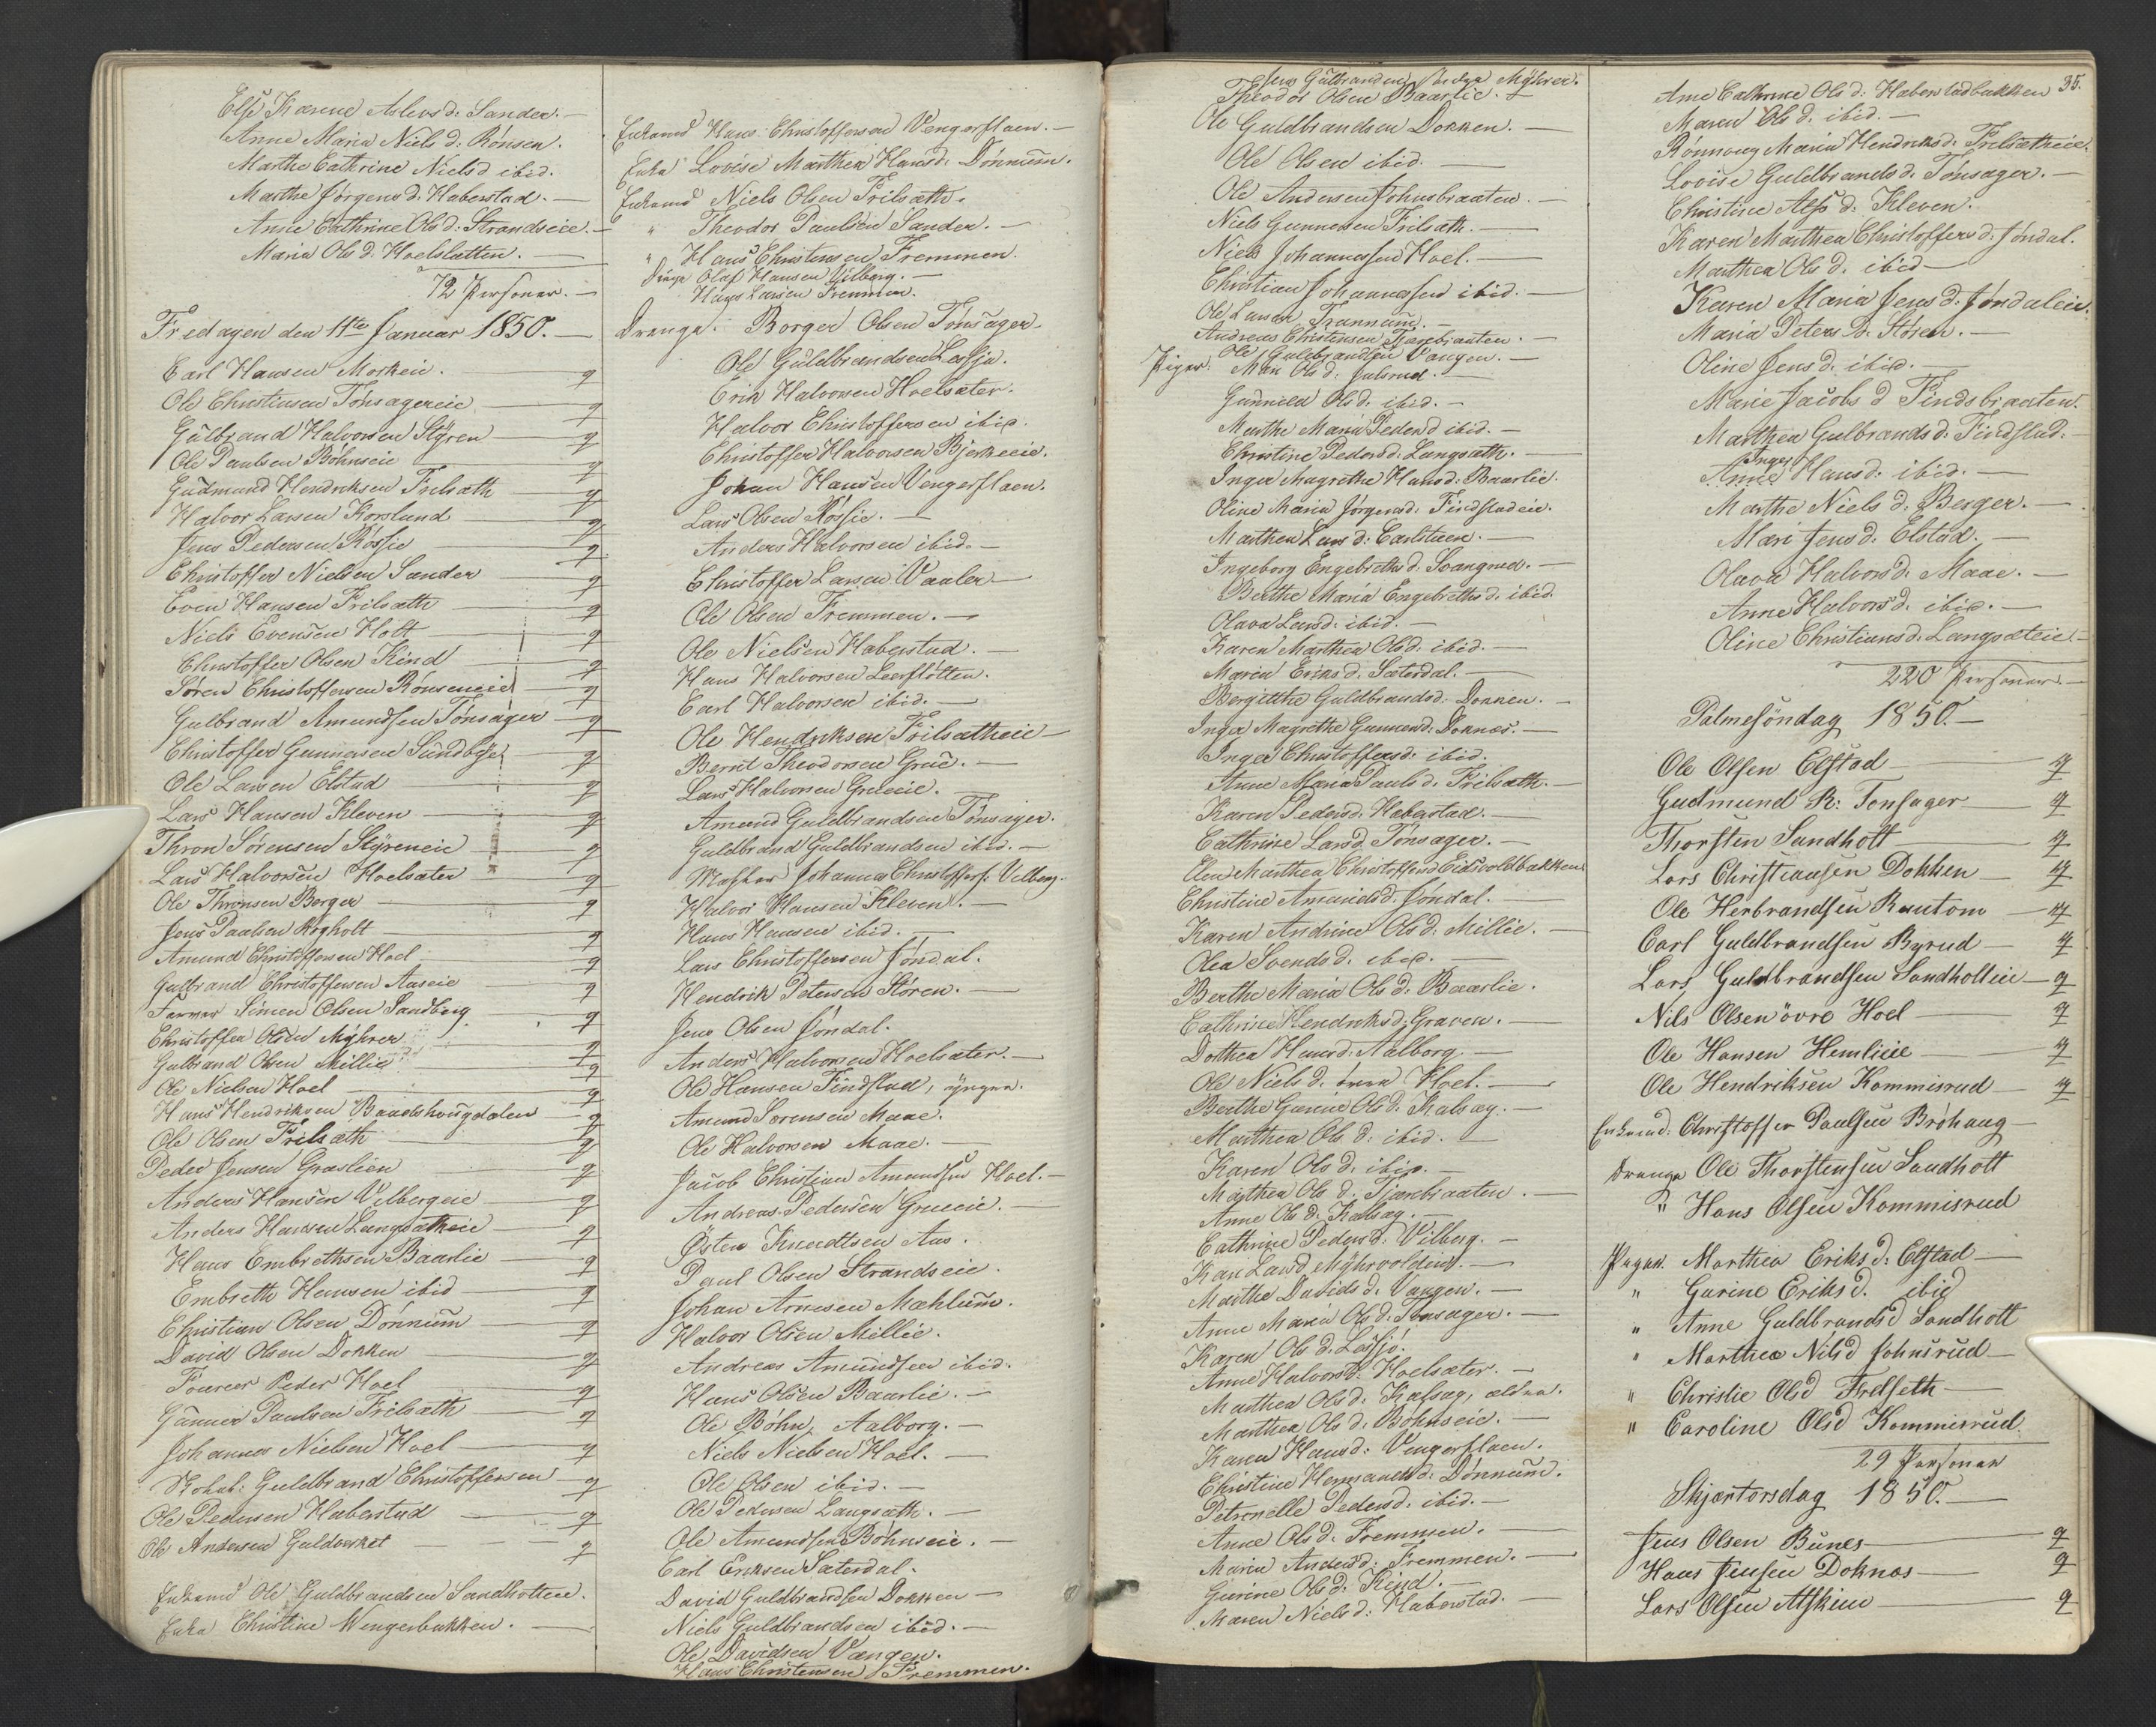 Else Karene Aslevsd: Sander. —
Anne Maria Niels d. Rönsen.
Marthe Cathrine Nielsd ibid.
Marthe Jörgens d. Haberstad. —
Anne Cathrine Ols d: Strandseie. —
Maria Ols d. Hoelsletten. —
72 Personer. —
Fredagen den 11te Januar 1850. —
Carl Hansen Morkeie. — q
Ole Christensen Tönsagereie — q
Gulbrand Halvorsen Styren — q
Ole Paulsen Böhnseie — q
Gudmund Hendriksen Frilsæth — q
Halvor Larsen Korslund — q
Jens Pedersen Rössie — q
Christoffer Nielsen Sander — q
Even Hansen Frilsæth — q
Niels Evensen Holt — q
Christoffer Olsen Kind — q
Sören Christoffersen Rönseneie — q
Gulbrand Amundsen Tönsager — q
Christoffer Gunnersen Sundbye — q
Ole Larsen Elstad — q
Lars Hansen Kleven — q
Thron Sörensen Styreneie — q
Lars Halvorsen Hoelsæter — q
Ole Thronsen Berger — q
Jens Paulsen Rogholt — q
Amund Christoffersen Hoel — q
Gulbrand Christoffersen Aaseie — q
Farver Simen Olsen Sandberg — q
Christoffer Olsen Myhrer — q
Gulbrand Olsen Millie — q
Ole Nielsen Hoel — q
Hans Hendriksen Baadshougdalen — q
Ole Olsen Frilsæth — q
Peder Jensen Græslien — q
Anders Hansen Vilbergeie — q
Anders Hansen Langsætheie — q
Hans Embrethsen Baarlie — q
Embreth Hansen ibid — q
Christian Olsen Dönnum — q
David Olsen Dokken — q
Fourer Peder Hoel — q
Gunner Paulsen Frilsæth — q
Johannes Nielsen Hoel — q
Guldbrand Christoffersen — q
Ole Pedersen Haberstad — q
Ole Andersen Guldverket — q
Enkemd Ole Guldbrandsen Sandholteie.
Enke Christine Wengerbakken. —
Enkemd Hans Christoffersen Vengerflaen. —
Enke Lovise Marthea Hansd: Dönnum.
Enkemd Niels Olsen Frilsæth.
" Theodor Paulsen Sander. —
" Hans Christensen Fremmen.
Drenge Olaf Hansen Vilberg. —
Hans Larsen Fremmen.
Drenge: Borger Olsen Tönsager —
Ole Guldbrandsen Lessjø.
Erik Halvorsen Hoelsæter.
Halvor Christoffersen ibid.
Christoffer Halvorsen Bjerkeeie.
Johan Hansen Vengerflaen.
Lars Olsen Rössie. —
Anders Halvorsen ibid. —
Christoffer Larsen Vaaler —
Ole Olsen Fremmen. —
Ole Nielsen Haberstad. —
Hans Halvorsen Leerflötten.
Carl Halvorsen ibid. —
Ole Hendriksen Frilsætheie —
Bernt Theodorsen Grue. —
Lars Halvorsen Grueeie. —
Amund Guldbrandsen Tönsager.
Guldbrand Guldbrandsen ibid. —
Johannes Christoffers. Vilberg.
Halvor Hansen Kleven. —
Hans Hansen ibid. —
Lars Christoffersen Jöndal.
Hendrik Petersen Stören. —
Jens Olsen Jöndal.
Anders Halvorsen Hoelsæter. —
Ole Hansen Findstad, yngre.
Amund Sörensen Maae.
Ole Halvorsen Maae. —
Jacob Christian Amundsen Hoel. —
Andreas Pedersen Grueeie. —
Östen Knudtsen Aas.
Paul Olsen Strandseie.
Johan Arnesen Mæhlum.
Halvor Olsen Millie.
Andreas Amundsen ibid.
Hans Olsen Baarlie. —
Ole Böhn, Aalborg. —
Niels Nielsen Hoel. —
Ole Olsen ibid. —
Ole Pedersen Langsæth. —
Ole Amundsen Böhnseie. —
Carl Eriksen Sæterdal.
David Guldbrandsen Dokken —
Niels Guldbrandsen ibid. —
Ole Davidsen Vangen.
Hans Christensen Fremmen.
Jens Gulbrandsen Myhrer.
Theodor Olsen Baarlie. —
Ole Guldbrandsen Dokken. —
Ole Olsen ibid. —
Ole Andersen Johnsbraaten. —
Niels Gunnersen Frilsæth. —
Niels Johannessen Hoel. —
Christian Johannessen ibid. —
Ole Larsen Trannum. —
Andreas Christensen Tjærebraaten. —
Ole Guldbrandsen Vangen. —
Piger: Mari Ols d: Julsrud. —
Gunnild Olsd. ibid. —
Marthe Maria Pedersd ibid. —
Christine Pedersd. Langsæth. —
Inger Magrethe Hansd: Baarlie.
Oline Maria Jörgensd. Findstadeie.
Marthea Lars d: Carlstuen. —
Ingeborg Engebrethsd. Svangerud. —
Berthe Maria Engebrethsd. ibid.
Olava Larsd. ibid. —
Karen Marthea Olsd. ibid. —
Maren Eriks d. Sæterdal. —
Bergitthe Guldbrandsd. Dokken. —
Inger Magrethe Gunnersd. Doknes. —
Inger Christoffersd. ibid.
Anne Maria Pauls d. Frilsæth. —
Karen Pedersd. Haberstad. —
Cathrine Larsd. Tönsager. —
Elen Marthea Christoffersd Eidsvoldbakken
Christine Amunds d. Jöndal. —
Karen Andrine Ols d. Millie. —
Olea Svends d. ibid. —
Berthe Maria Ols d: Baarlie.
Cathrine Hendriksd. Graven. —
Dorthea Hansd. Aalborg —
Ole Niels d. Hoel. —
Berthe Gurine Ols d. Kalsæg. —
Marthea Ols d. ibid. —
Karen Ols d. ibid. —
Marthea Ols d. Tjærebraaten. —
Anne Ols d. Kalsæg. —
Cathrine Peders d. Vilberg. —
Kari Larsd. Myhrvolden. —
Marthe Davids d. Vangen. —
Anne Maria Ols d. Tönsager. —
Karen Ols d. Lessjö.
Anne Halvorsd. Hoelsæter. —
Marthea Ols d. Kalsæg, ældre.
Marthea Ols d. Böhnseie. —
Karen Hansd: Vengerflaen.
Christine Hermands d. Dönnum.
Petronelle Pedersd. ibid. —
Anne Ols d. Fremmen. —
Maren Andersd: Fremmen. —
Gurine Ols d. Kind. —
Maren Niels d: Haberstad. —
35.
Anne Cathrine Ols d: Haberstadbakken
Maren Ols d. ibid. —
Rönnoug Maria Hendriksd. Frilsætheie.
Lovise Guldbrandsd. Tönsager. —
Christine Alfs d: Kleven.
Karen Marthea Christoffersd. Jöndal.
Marthea Ols d. ibid —
Karen Maria Jens d. Jöndaleie.
Maria Peters d. Stören. —
Oline Jens d. ibid. —
Marie Jacobs d Findsbraaten.
Marthea Gulbrands d. Findstad. —
Inger
Anne Hansd. ibid. —
Marthe Niels d. Berger. —
Mari Jens d. Elstad. —
Olava Halvorsd. Maae. —
Anne Halvors d. ibid. —
Oline Christians d. Langsæteie —
220 Personer. —
Palmesöndag 1850. —
Ole Olsen Elstad — q
Gudmund R. Tonsager — q
Thorsten Sandholt — q
Lars Christiansen Dokken — q
Ole Herbrandsen Rustom — q
Carl Guldbrandsen Byrud — q
Lars Guldbrandsen Sandholteie — q
Nils Olsen övre Hoel — q
Ole Hansen Hemlieie — q
Ole Hendriksen Kommisrud — q
Enkemd: Christoffer Paulsen Bröhaug —
Drenge Ole Thorstensen Sandholt
" Hans Olsen Kommisrud
Piger. Marthea Eriks d: Elstad —
" Gurine Eriks d. ibid
" Anne Guldbrands d Sandholt
" Marthea Nilsd Johnsrud —
" Christie Olsd Frilseth —
" Caroline Olsd Kommisrud.
29 Personer
Skjærtorsdag 1850. —
Jens Olsen Bunes — q
Hans Jensen Doknes — q
Lars Olsen Atskim — q